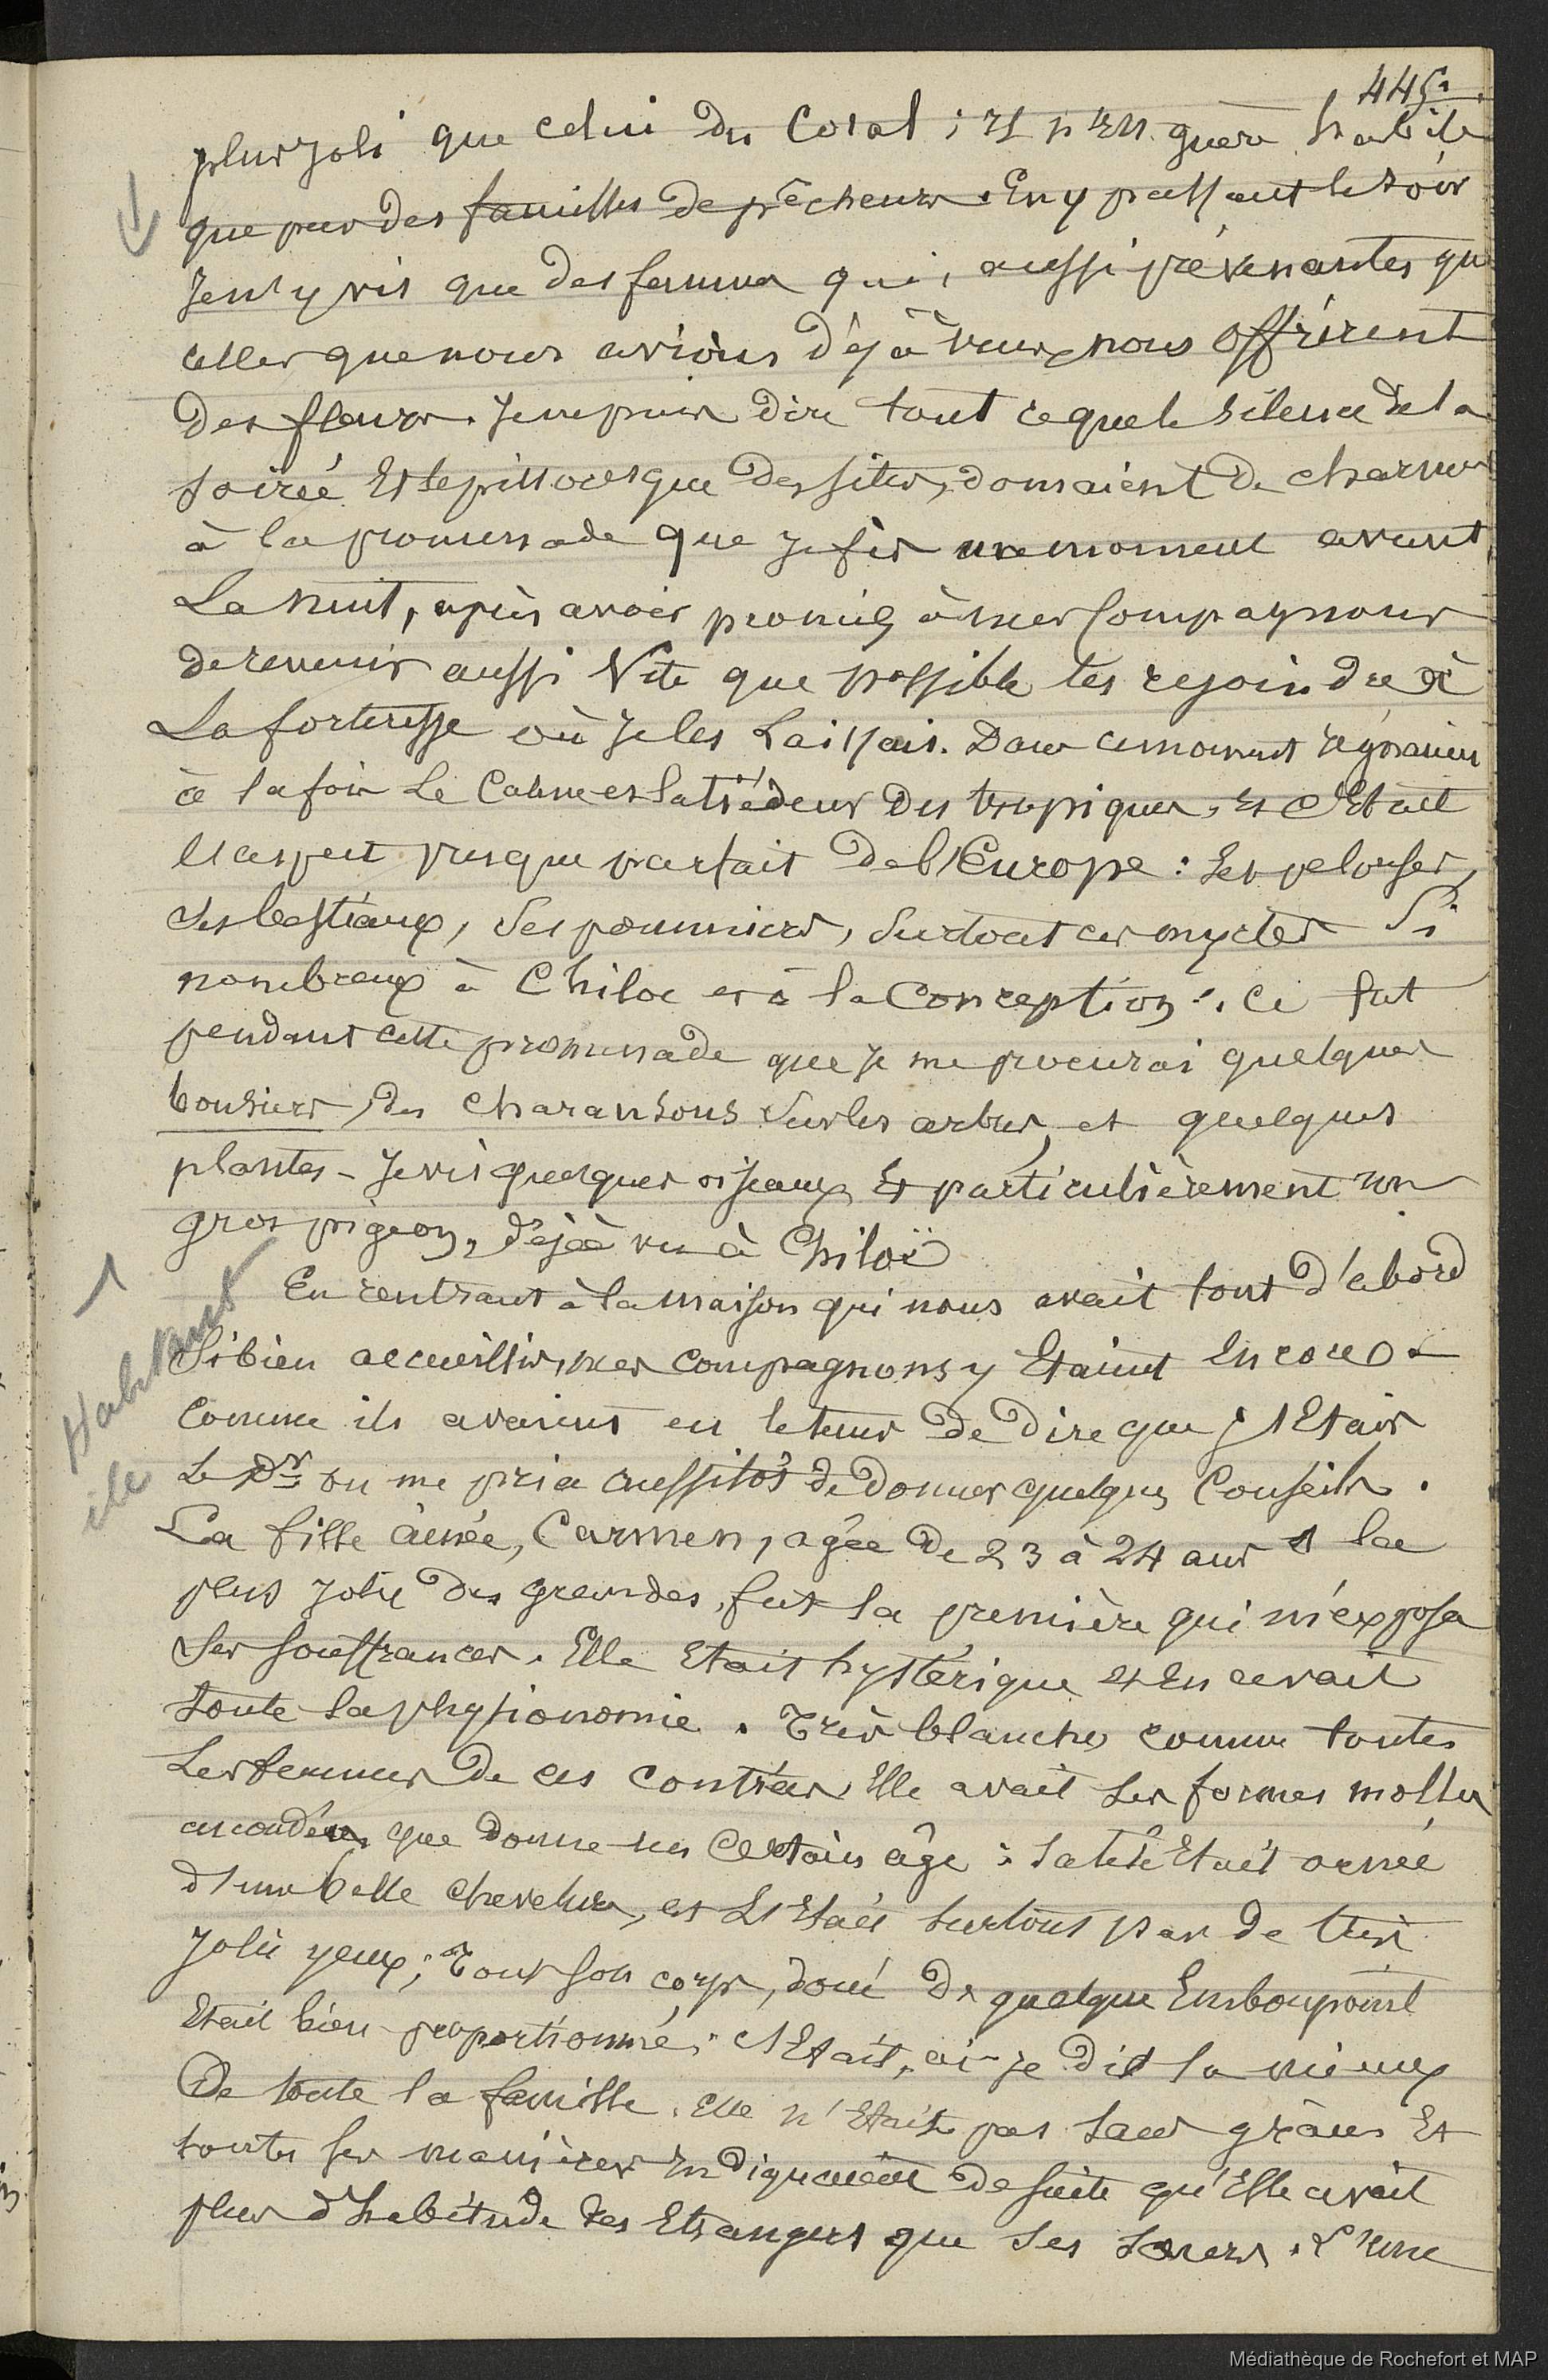 445.
plus joli que celui du Coral ; il n'est guère habité
que par des familles de pêcheurs. En y passant le soir
Je n'y vis que des femmes qui, aussi prévenantes que
celles que nous avions déjà vues, nous offrirent
des fleurs. Je ne puis dire tout ce que le silence de la
soirée Et le pittoresque des sites, donnaient de charmes
à la promenade que je fis un moment avant
La nuit, après avoir promis à mes Compagnons
de revenir aussi Vite que possible les rejoindre à
La forteresse où je les Laissais. Dans ce moment régnaient
à la fois Le Calme et la tiédeur des tropiques, Et c'Etait
l'aspect presque parfait de l'Europe : Ses pelouses,
ses bestiaux, Ses pommiers, Surtout ces myrtes Si
nombreux à Chiloe et à la Conception. Ce fut
pendant cette promenade que je me procurai quelques
bousiers, des charansons Sur les arbres, et quelques
plantes - Je vis quelques oiseaux, Et particulièrement un
gros pigeon, déjà vu à Chiloë
En rentrant à la maison qui nous avait tout d'abord
Si bien accueillis, mes compagnons y Etaient Encore.
Comme ils avaient eu le tems de dire que j'Etais
Le Dr on me pria aussitôt de donner quelques Conseils.
La fille ainée, Carmen, agée de 23 à 24 ans Et la
plus jolie des grandes, fut la première qui m'exposa
Ses souffrances. Elle Etait hystérique et En avait
toute la physionomie. Très blanche, comme toutes
Les femmes de ces contrées, Elle avait Les formes molles
que donne un Certain âge : Sa tête Etait ornée
d'une belle chevelure, et L'Etait surtout par de très
Jolis yeux ; Tout son corps, doué de quelque Embonpoint
Etait bien proportionné ; c'Etait, ai-je dit la mieux
De toute la famille. Elle n'Etait pas sans grâces Et
toutes ses manières Indiquaient de suite qu'Elle avait
plus d'habitude des Etrangers que Ses soeurs. L'une
Habitant
ile
Médiathèque de Rochefort et MAP